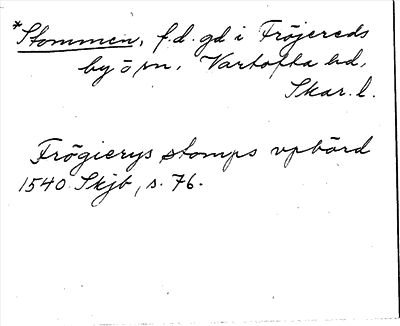 *Stommen, f.d. gd i Fröjereds
by o sn, Vartofta hd,
Skar. l.
Frögierys stomps vpbörd
1540 Skjb, s. 76.